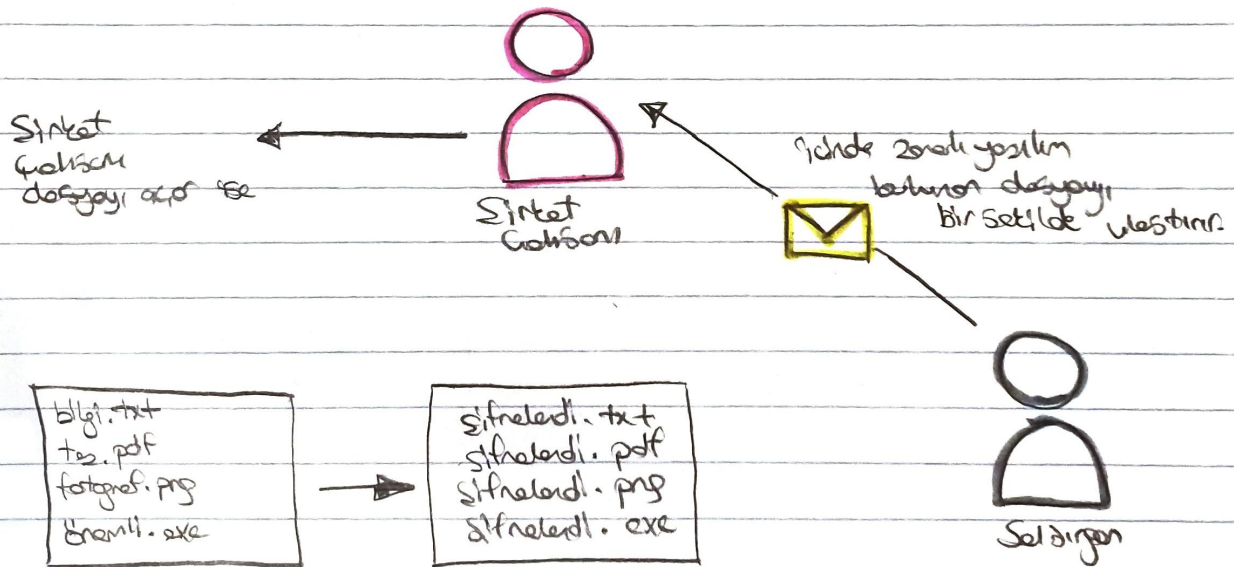 Şirket
Çalışanı
dosyayı açar ise
Şirket
Çalışanı
içinde zararlı yazılım
bulunan dosyayı
bir şekilde ulaştırır.
bilgi.txt
tez.pdf
fotograf.png
önemli.exe
şifrelendi.txt
şifrelendi.pdf
şifrelendi.png
şifrelendi.exe
Saldırgan